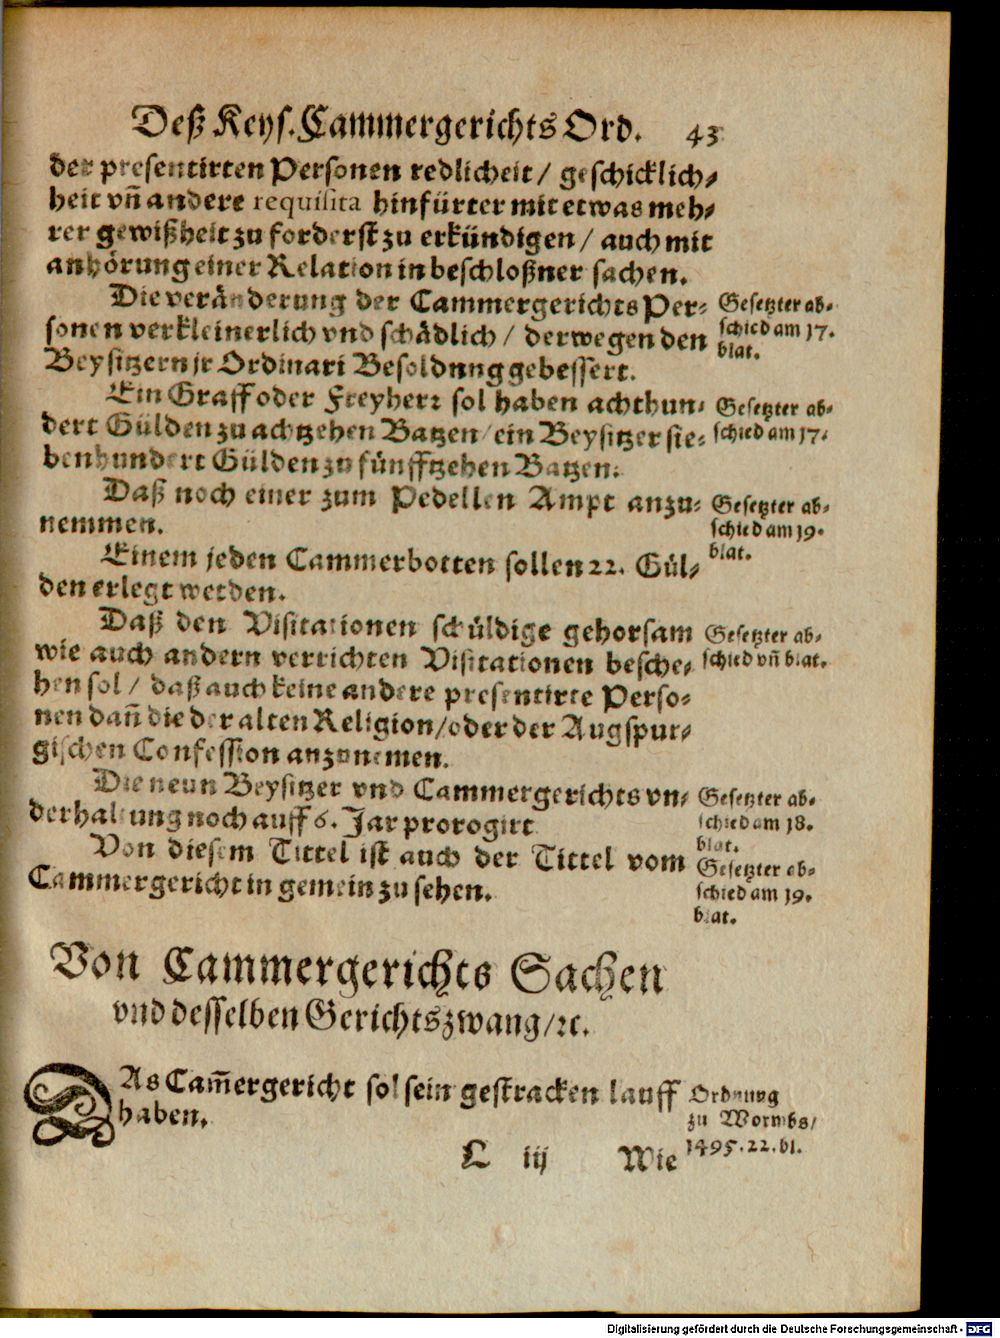 Deß Keys. Cammergerichts Ord. 43
der presentirten Personen redlicheit / geschicklich⸗
heit vñ andere requisita hinfürter mit etwas meh⸗
rer gewißheit zu forderst zu erkündigen / auch mit
anhörung einer Relation in beschloßner sachen.
Die veränderung der Cammergerichts Per⸗
sonen verkleinerlich vnd schädlich / derwegen den
Beysitzern jr Ordinari Besoldung gebessert.
Gesetzter ab⸗
schied am 17.
blat.
Ein Graff oder Freyherr sol haben achthun⸗
dert Gülden zu achtzehen Batzen / ein Beysitzer sie⸗
benhundert Gülden zu fünfftzehen Batzen.
Gesetzter ab⸗
schied am 17.
Daß noch einer zum Pedellen Ampt anzu⸗
nemmen.
Gesetzter ab⸗
schied am 19.
blat.
Einem jeden Cammerbotten sollen 22. Gül⸗
den erlegt werden.
Daß den Visitationen schüldige gehorsam
wie auch andern verrichten Visitationen besche⸗
hen sol / daß auch keine andere presentirte Perso⸗
nen dañ die der alten Religion / oder der Augspur⸗
gischen Confession anzunemen.
Gesetzter ab⸗
schied vñ blat.
Die neun Beysitzer vnd Cammergerichts vn⸗
derhaltung noch auff 6. Jar prorogirt
Gesetzter ab⸗
schied am 18.
blat.
Von diesem Tittel ist auch der Tittel vom
Cammergericht in gemein zu sehen.
Gesetzter ab⸗
schied am 19.
blat.
Von Cammergerichts Sachen
vnd desselben Gerichtszwang / ꝛc.
DAs Cam̃ergericht sol sein gestracken lauff
haben.
Ordnung
zu Wormbs /
1495. 22. bl.
L iij Wie
Digitalisierung gefördert durch die Deutsche Forschungsgemeinschaft - DFG